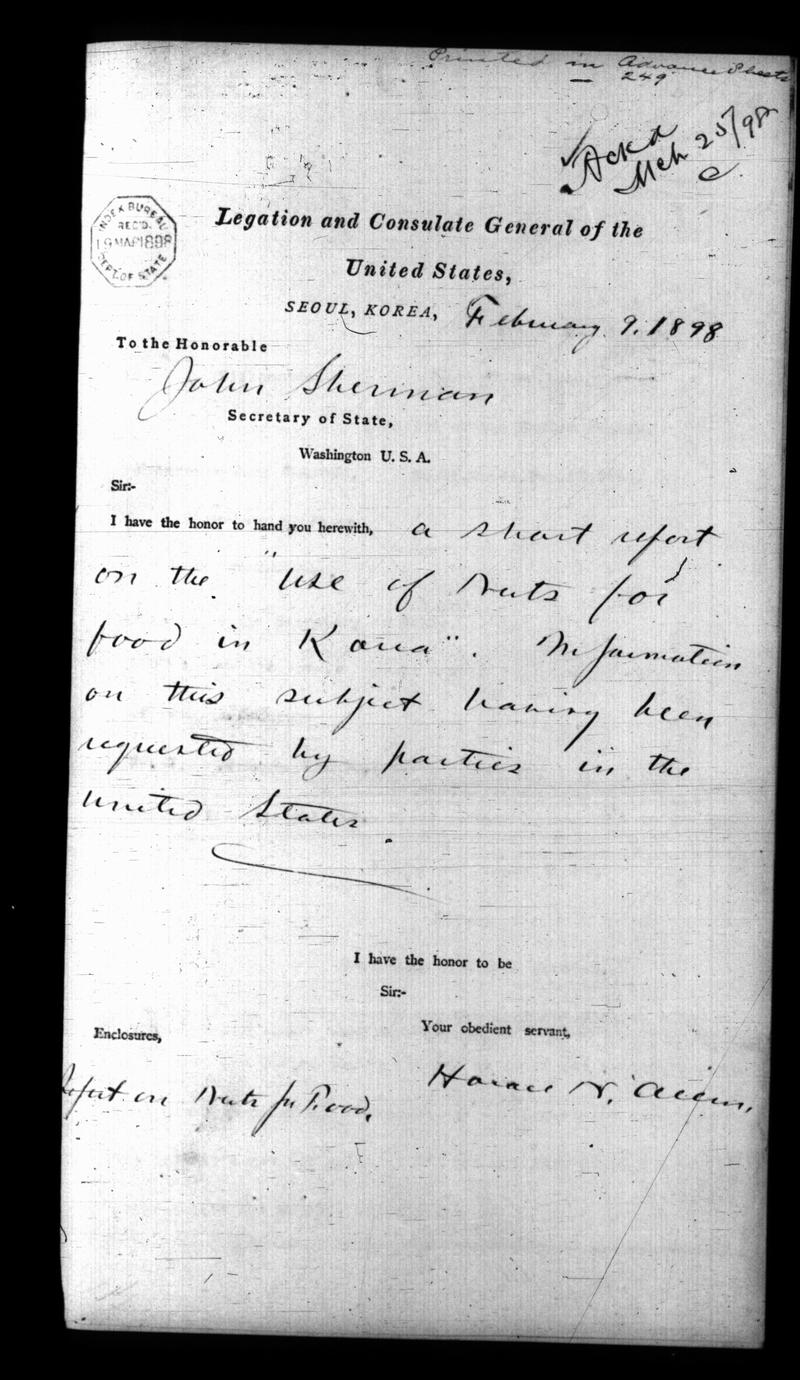 Printed in Advance Sheets
249
Ackd
Mch 25/98
C
INDEX BUREAU
REC'D.
19 MAR 1898
DEPT. OF STATE
Legation and Consulate General of the
United States,
SEOUL, KOREA, February 9, 1898
To the Honorable
John Sherman
Secretary of State,
Washington U. S. A.
Sir:-
I have the honor to hand you herewith, a short report
on the "Use of Nuts for
food in Korea". Information
on this subject having been
requested by parties in the
United States.
I have the honor to be
Sir:-
Enclosures,
Your obedient servant,
Report on Nuts for Food.
Horace N. Allen.